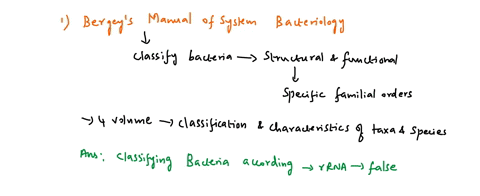 1) Bergey's Manual of System Bacteriology
↓
classify bacteria → Structural & functional
↓
Specific familial orders
→ 4 volume → classification & characteristics of taxa & species
Ans: Classifying Bacteria acording → rRNA → false